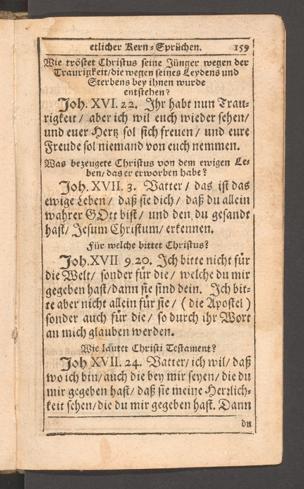 etlicher Kern-Sprüchen. 159
Wie tröstet Christus seine Jünger wegen der
Traurigkeit/die wegen seines Leydens und
Sterbens bey ihnen wurde
entstehen?
Joh. XVI. 22. Ihr habt nun Trau-
rigkeit/ aber ich wil euch wieder sehen/
und euer Hertz sol sich freuen/ und eure
Freude sol niemand von euch nemmen.
Was bezeugete Christus von dem ewigen Le-
ben/das er erworben habe?
Joh. XVII. 3. Vatter/ das ist das
ewige Leben/ daß sie dich/ daß du allein
wahrer GOtt bist/ und den du gesandt
hast/ Jesum Christum/ erkennen.
Für welche bittet Christus?
Joh. XVII 9. 20. Ich bitte nicht für
die Welt/ sonder für die/ welche du mir
gegeben hast/ dann sie sind dein. Ich bit-
te aber nicht allein für sie/ (die Apostel)
sonder auch für die/ so durch ihr Wort
an mich glauben werden.
Wie lautet Christi Testament?
Joh XVII. 24. Vatter/ ich wil/ daß
wo ich bin/ auch die bey mir seyen/ die du
mir gegeben hast/ daß sie meine Herzlich-
keit sehen/die du mir gegeben hast. Dann
du